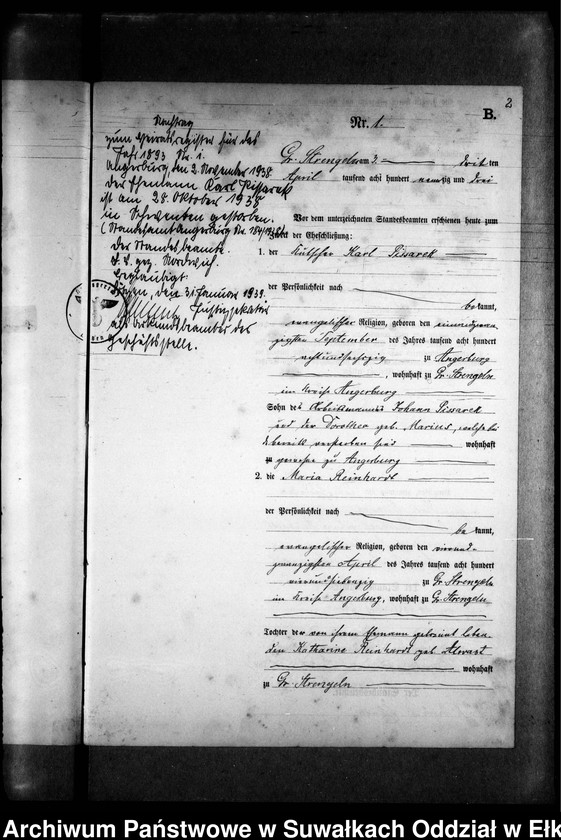 2
B.
Nr. 1.
Nachtrag
zum Heiratsregister für das
Jahr 1893 Nr. 1.
Angerburg den 2. November 1938.
Der Ehemann Karl Pissarek
ist am 28. Oktober 1938
in Schwenten gestorben.
(Standesamt Angerburg Nr. 184/1938)
Der Standesbeamte.
gez. Nordwich.
Beglaubigt.
den 31. Januar 1939.
Justizinspektor
als Urkundsbeamter der
Geschäftsstelle.
Gr. Strengeln am 3. dritten
April tausend acht hundert neunzig und drei
Vor dem unterzeichneten Standesbeamten erschienen heute zum
Zweck der Eheschließung:
1. der Kutscher Karl Pissarek
der Persönlichkeit nach
bekannt,
evangelischer Religion, geboren den einundzwan-
zigsten September des Jahres tausend acht hundert
achtundsechszig zu Angerburg
, wohnhaft zu Gr. Strengeln
im Kreise Angerburg
Sohn des Arbeitsmannes Johann Pissarek
und der Dorothea geb. Marius, welche bei-
de bereits verstorben sind wohnhaft
zu gewesen zu Angerburg
2. die Maria Reinhardt
der Persönlichkeit nach
bekannt,
evangelischer Religion, geboren den vierund-
zwanzigsten April des Jahres tausend acht hundert
vierundsiebenzig zu Gr. Strengeln
im Kreise Angerburg, wohnhaft zu Gr. Strengeln
Tochter der von ihrem Ehemann getrennt leben-
den Katharine Reinhardt geb. Alwast
wohnhaft
zu Gr. Strengeln
Archiwum Państwowe w Suwałkach Oddział w Ełk